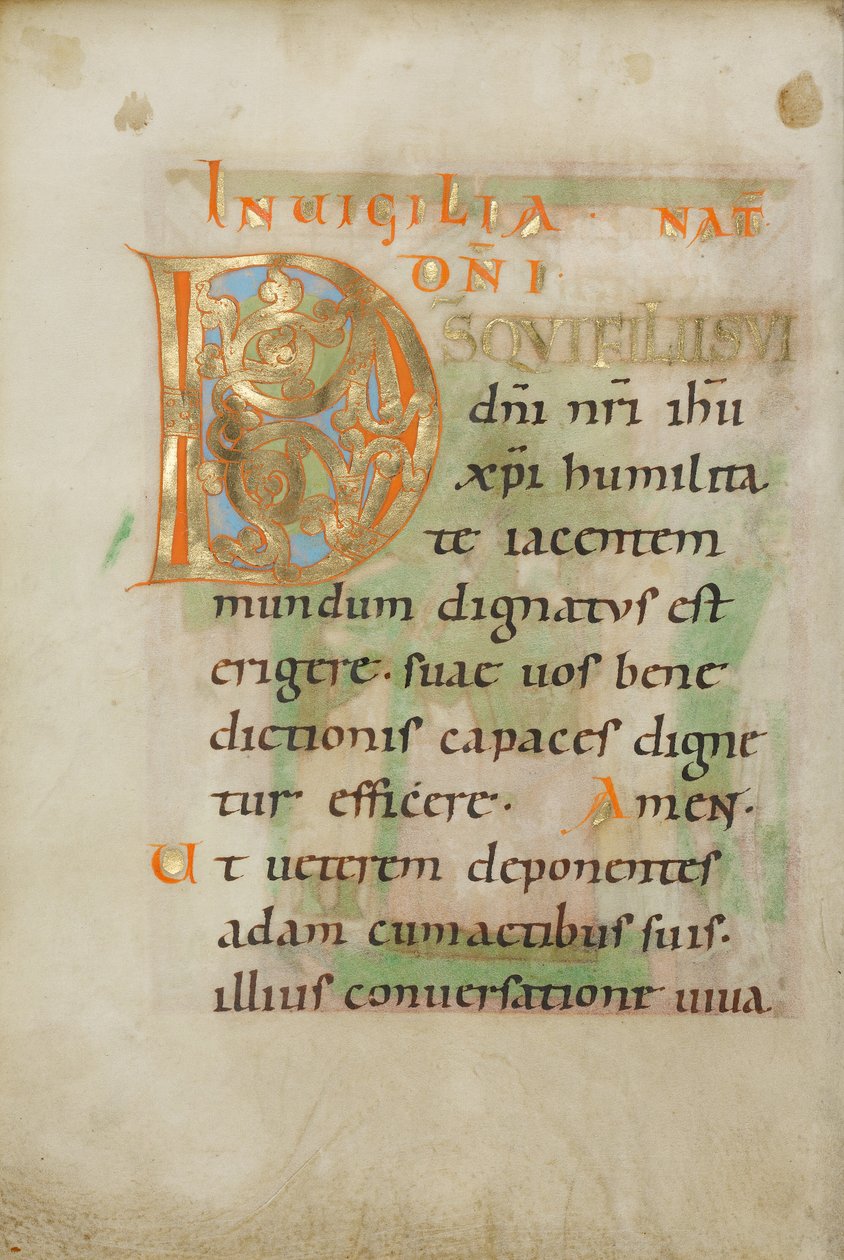 IN UIGILIA · NAT̄
DN̄I ·
DS̄ QVI FILII SVI
dn̄i nr̄i ih̄u
xp̄i humilita
te iacentem
mundum dignatvs est
erigere. suae uos bene
dictionis capaces digne
tur efficere. AmeN.
Ut ueterem deponentes
adam cum actibus suis.
illius conuersatione uiua